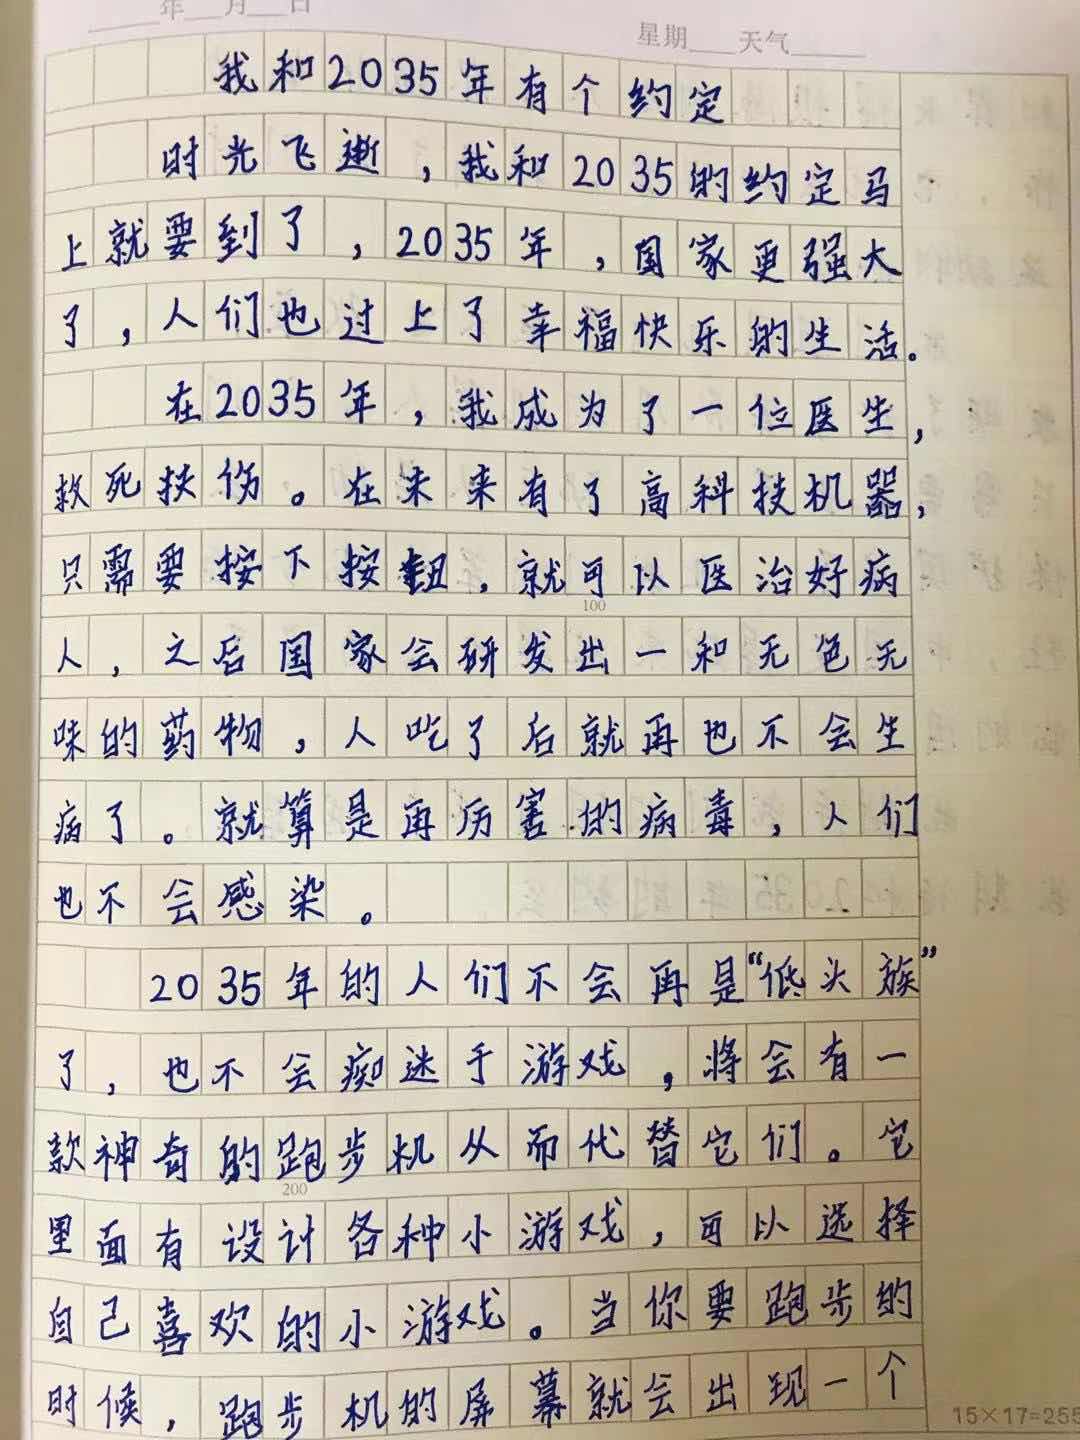 年 月 日
星期 天气
我和2035年有个约定
时光飞逝，我和2035的约定马
上就要到了，2035年，国家更强大
了，人们也过上了幸福快乐的生活。
在2035年，我成为了一位医生，
救死扶伤。在未来有了高科技机器，
只需要按下按钮，就可以医治好病
100
人，之后国家会研发出一和无色无
味的药物，人吃了后就再也不会生
病了。就算是再厉害的病毒，人们
也不会感染。
2035年的人们不会再是“低头族”
了，也不会痴迷于游戏，将会有一
款神奇的跑步机从而代替它们。它
200
里面有设计各种小游戏，可以选择
自己喜欢的小游戏。当你要跑步的
时候，跑步机的屏幕就会出现一个
15×17=255